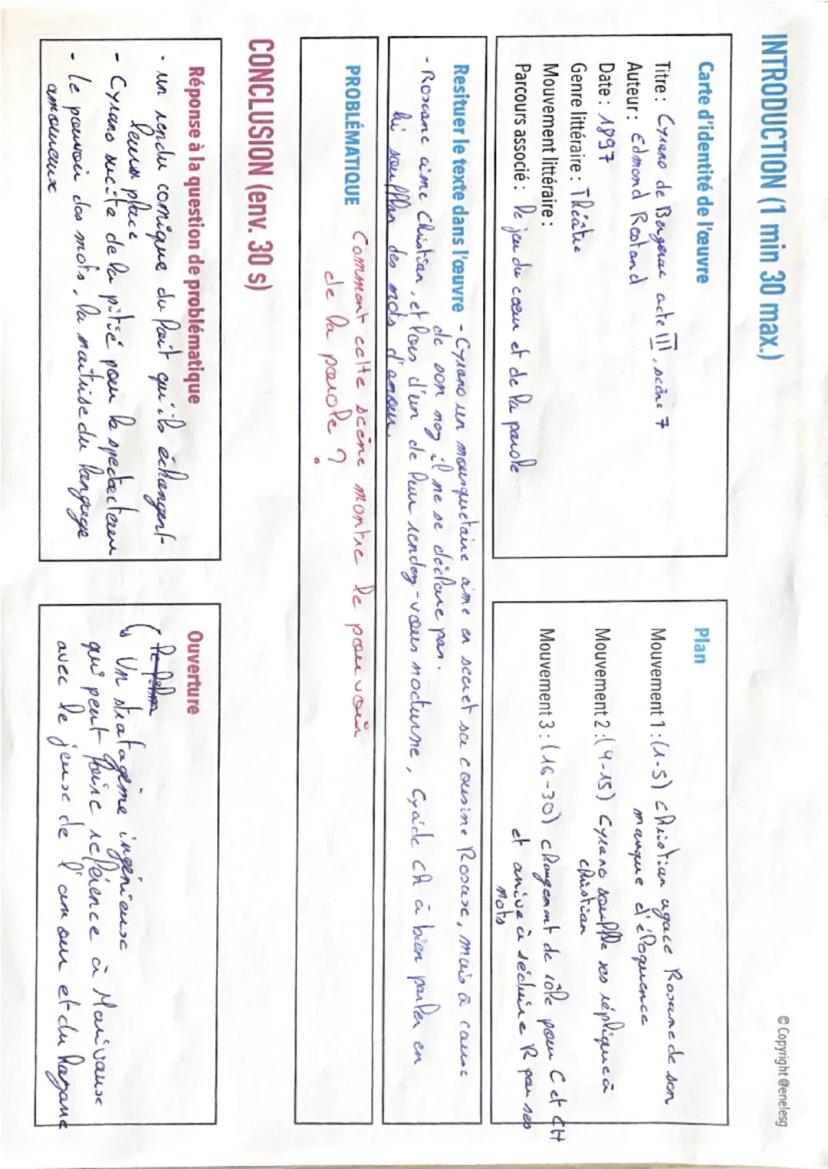 © Copyright @enelesg
INTRODUCTION (1 min 30 max.)
Carte d'identité de l'œuvre
Titre : Cyrano de Bergerac acte III, scène 7
Auteur : Edmond Rostand
Date : 1897
Genre littéraire : Théâtre
Mouvement littéraire :
Parcours associé : le jeu du cœur et de la parole
Plan
Mouvement 1 : (1-5) Christian agace Roxane de son
manque d'éloquence
Mouvement 2 : (4-15) Cyrano souffle ses répliques à
Christian
Mouvement 3 : (16-30) changement de rôle pour C et CH
et arrive à séduire R par ses
mots
Resituer le texte dans l'œuvre - Cyrano un mousquetaire aime en secret sa cousine Roxane, mais à cause
de son nez il ne se déclare pas.
- Roxane aime Christian, et lors d'un de leur rendez-vous nocturne, Cy aide CH à bien parler en
lui soufflan des mots d'amour.
PROBLÉMATIQUE Comment cette scène montre le pouvoir
de la parole ?
CONCLUSION (env. 30 s)
Réponse à la question de problématique
- un rendu comique du fait qu'ils échangent
leurs place
- Cyrano sucite de la pitié pour le spectateur
- le pouvoir des mots, la maitrise du langage
amoureux
Ouverture
↳ Un stratagème ingénieux
qui peut faire référence à Marivaux
avec le jeux de l'amour et du hazard